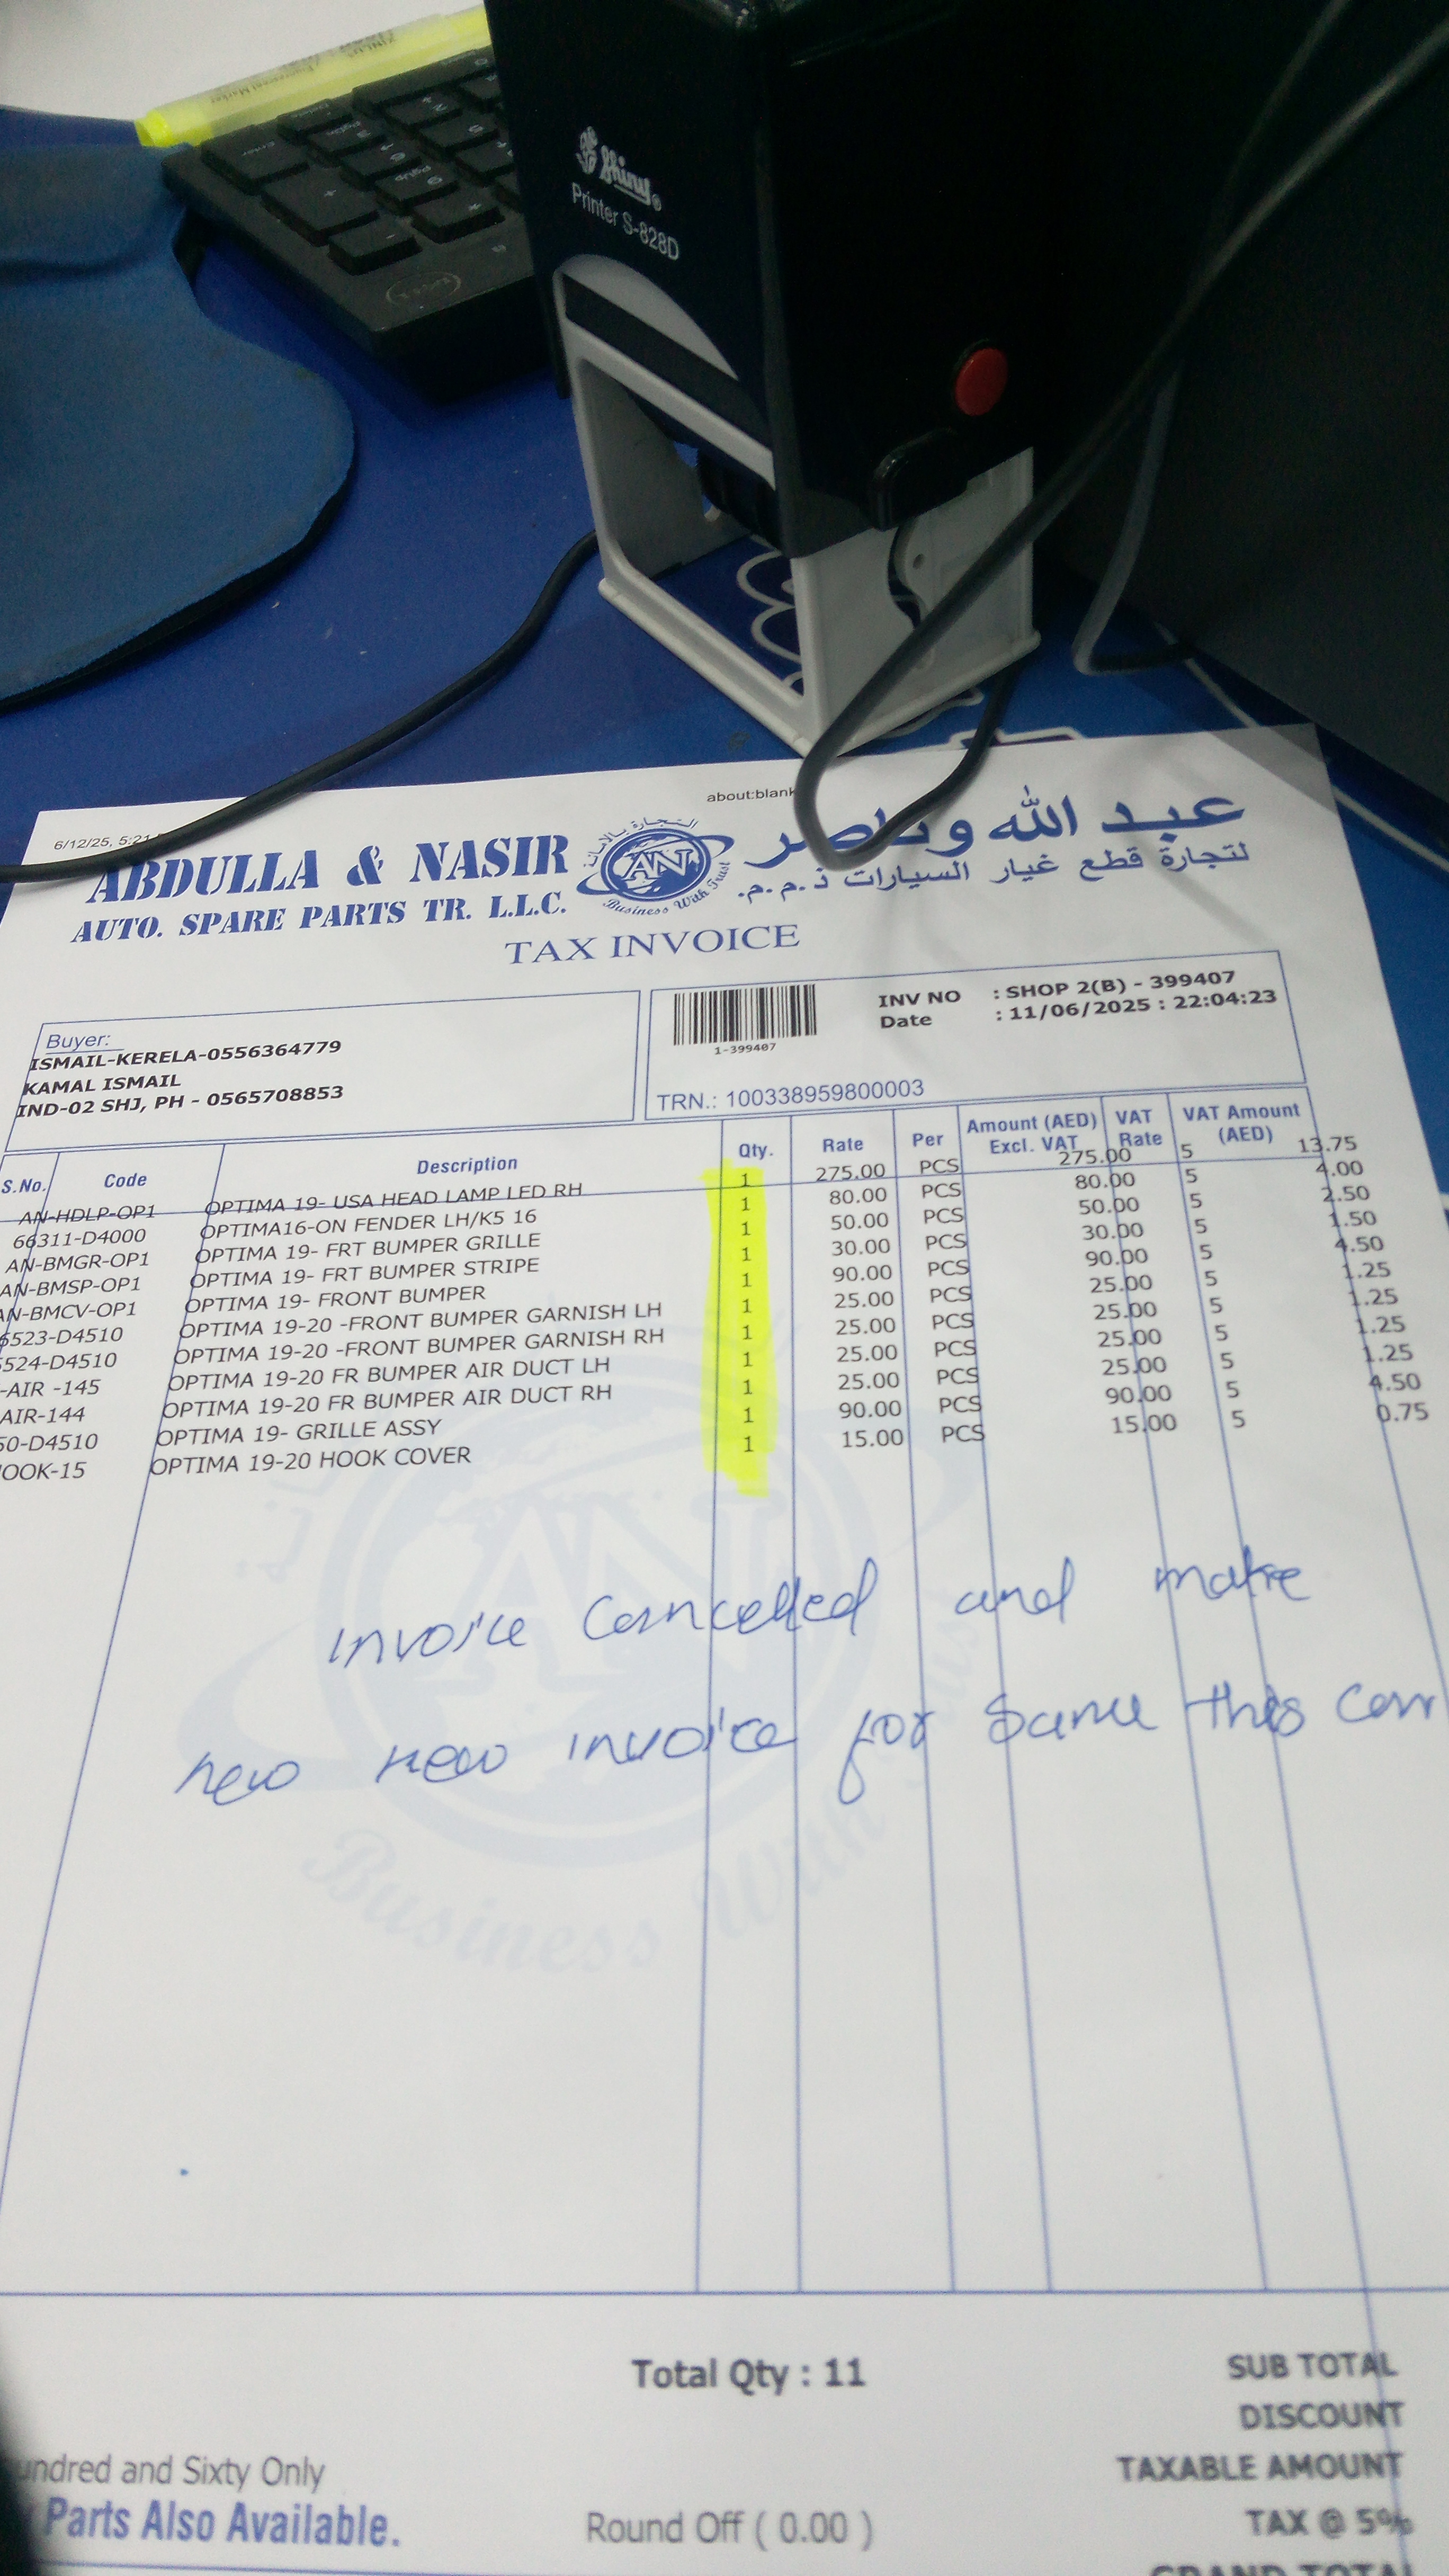 Shiny
Printer S-828D
6/12/25, 5:21
about:blank
ABDULLA & NASIR
AUTO. SPARE PARTS TR. L.L.C.
AN
Business With Trust
عبد الله وناصر
لتجارة قطع غيار السيارات ذ.م.م.
TAX INVOICE
Buyer:
ISMAIL-KERELA-0556364779
KAMAL ISMAIL
IND-02 SHJ, PH - 0565708853
1-399407
INV NO : SHOP 2(B) - 399407
Date : 11/06/2025 : 22:04:23
TRN.: 100338959800003
S.No. Code Description Qty. Rate Per Amount (AED) Excl. VAT VAT Rate VAT Amount (AED)
AN-HDLP-OP1 OPTIMA 19- USA HEAD LAMP LED RH 1 275.00 PCS 275.00 5 13.75
66311-D4000 OPTIMA16-ON FENDER LH/K5 16 1 80.00 PCS 80.00 5 4.00
AN-BMGR-OP1 OPTIMA 19- FRT BUMPER GRILLE 1 50.00 PCS 50.00 5 2.50
AN-BMSP-OP1 OPTIMA 19- FRT BUMPER STRIPE 1 30.00 PCS 30.00 5 1.50
AN-BMCV-OP1 OPTIMA 19- FRONT BUMPER 1 90.00 PCS 90.00 5 4.50
6523-D4510 OPTIMA 19-20 -FRONT BUMPER GARNISH LH 1 25.00 PCS 25.00 5 1.25
524-D4510 OPTIMA 19-20 -FRONT BUMPER GARNISH RH 1 25.00 PCS 25.00 5 1.25
-AIR -145 OPTIMA 19-20 FR BUMPER AIR DUCT LH 1 25.00 PCS 25.00 5 1.25
AIR-144 OPTIMA 19-20 FR BUMPER AIR DUCT RH 1 25.00 PCS 25.00 5 1.25
50-D4510 OPTIMA 19- GRILLE ASSY 1 90.00 PCS 90.00 5 4.50
OOK-15 OPTIMA 19-20 HOOK COVER 1 15.00 PCS 15.00 5 0.75
invoice Cancelled and make
new new invoice for Same this Carr
AN
Business With
Total Qty : 11
SUB TOTAL
DISCOUNT
TAXABLE AMOUNT
undred and Sixty Only
Parts Also Available.
Round Off ( 0.00 )
TAX @ 5%
GRAND TOTAL